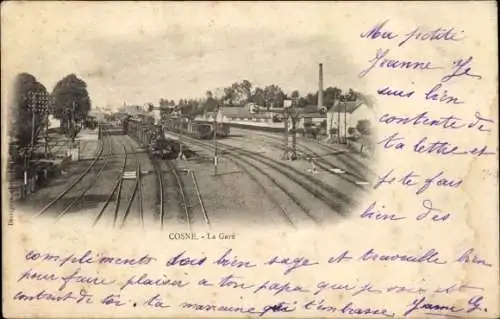 Ma petite
Jeanne Je
suis bien
contente de
ta lettre et
Je te fais
bien des
COSNE. - La Gare
compliments sois bien sage et travaille bien
pour faire plaisir a ton papa qui je vois est
content de toi. ta marraine qui t'embrasse